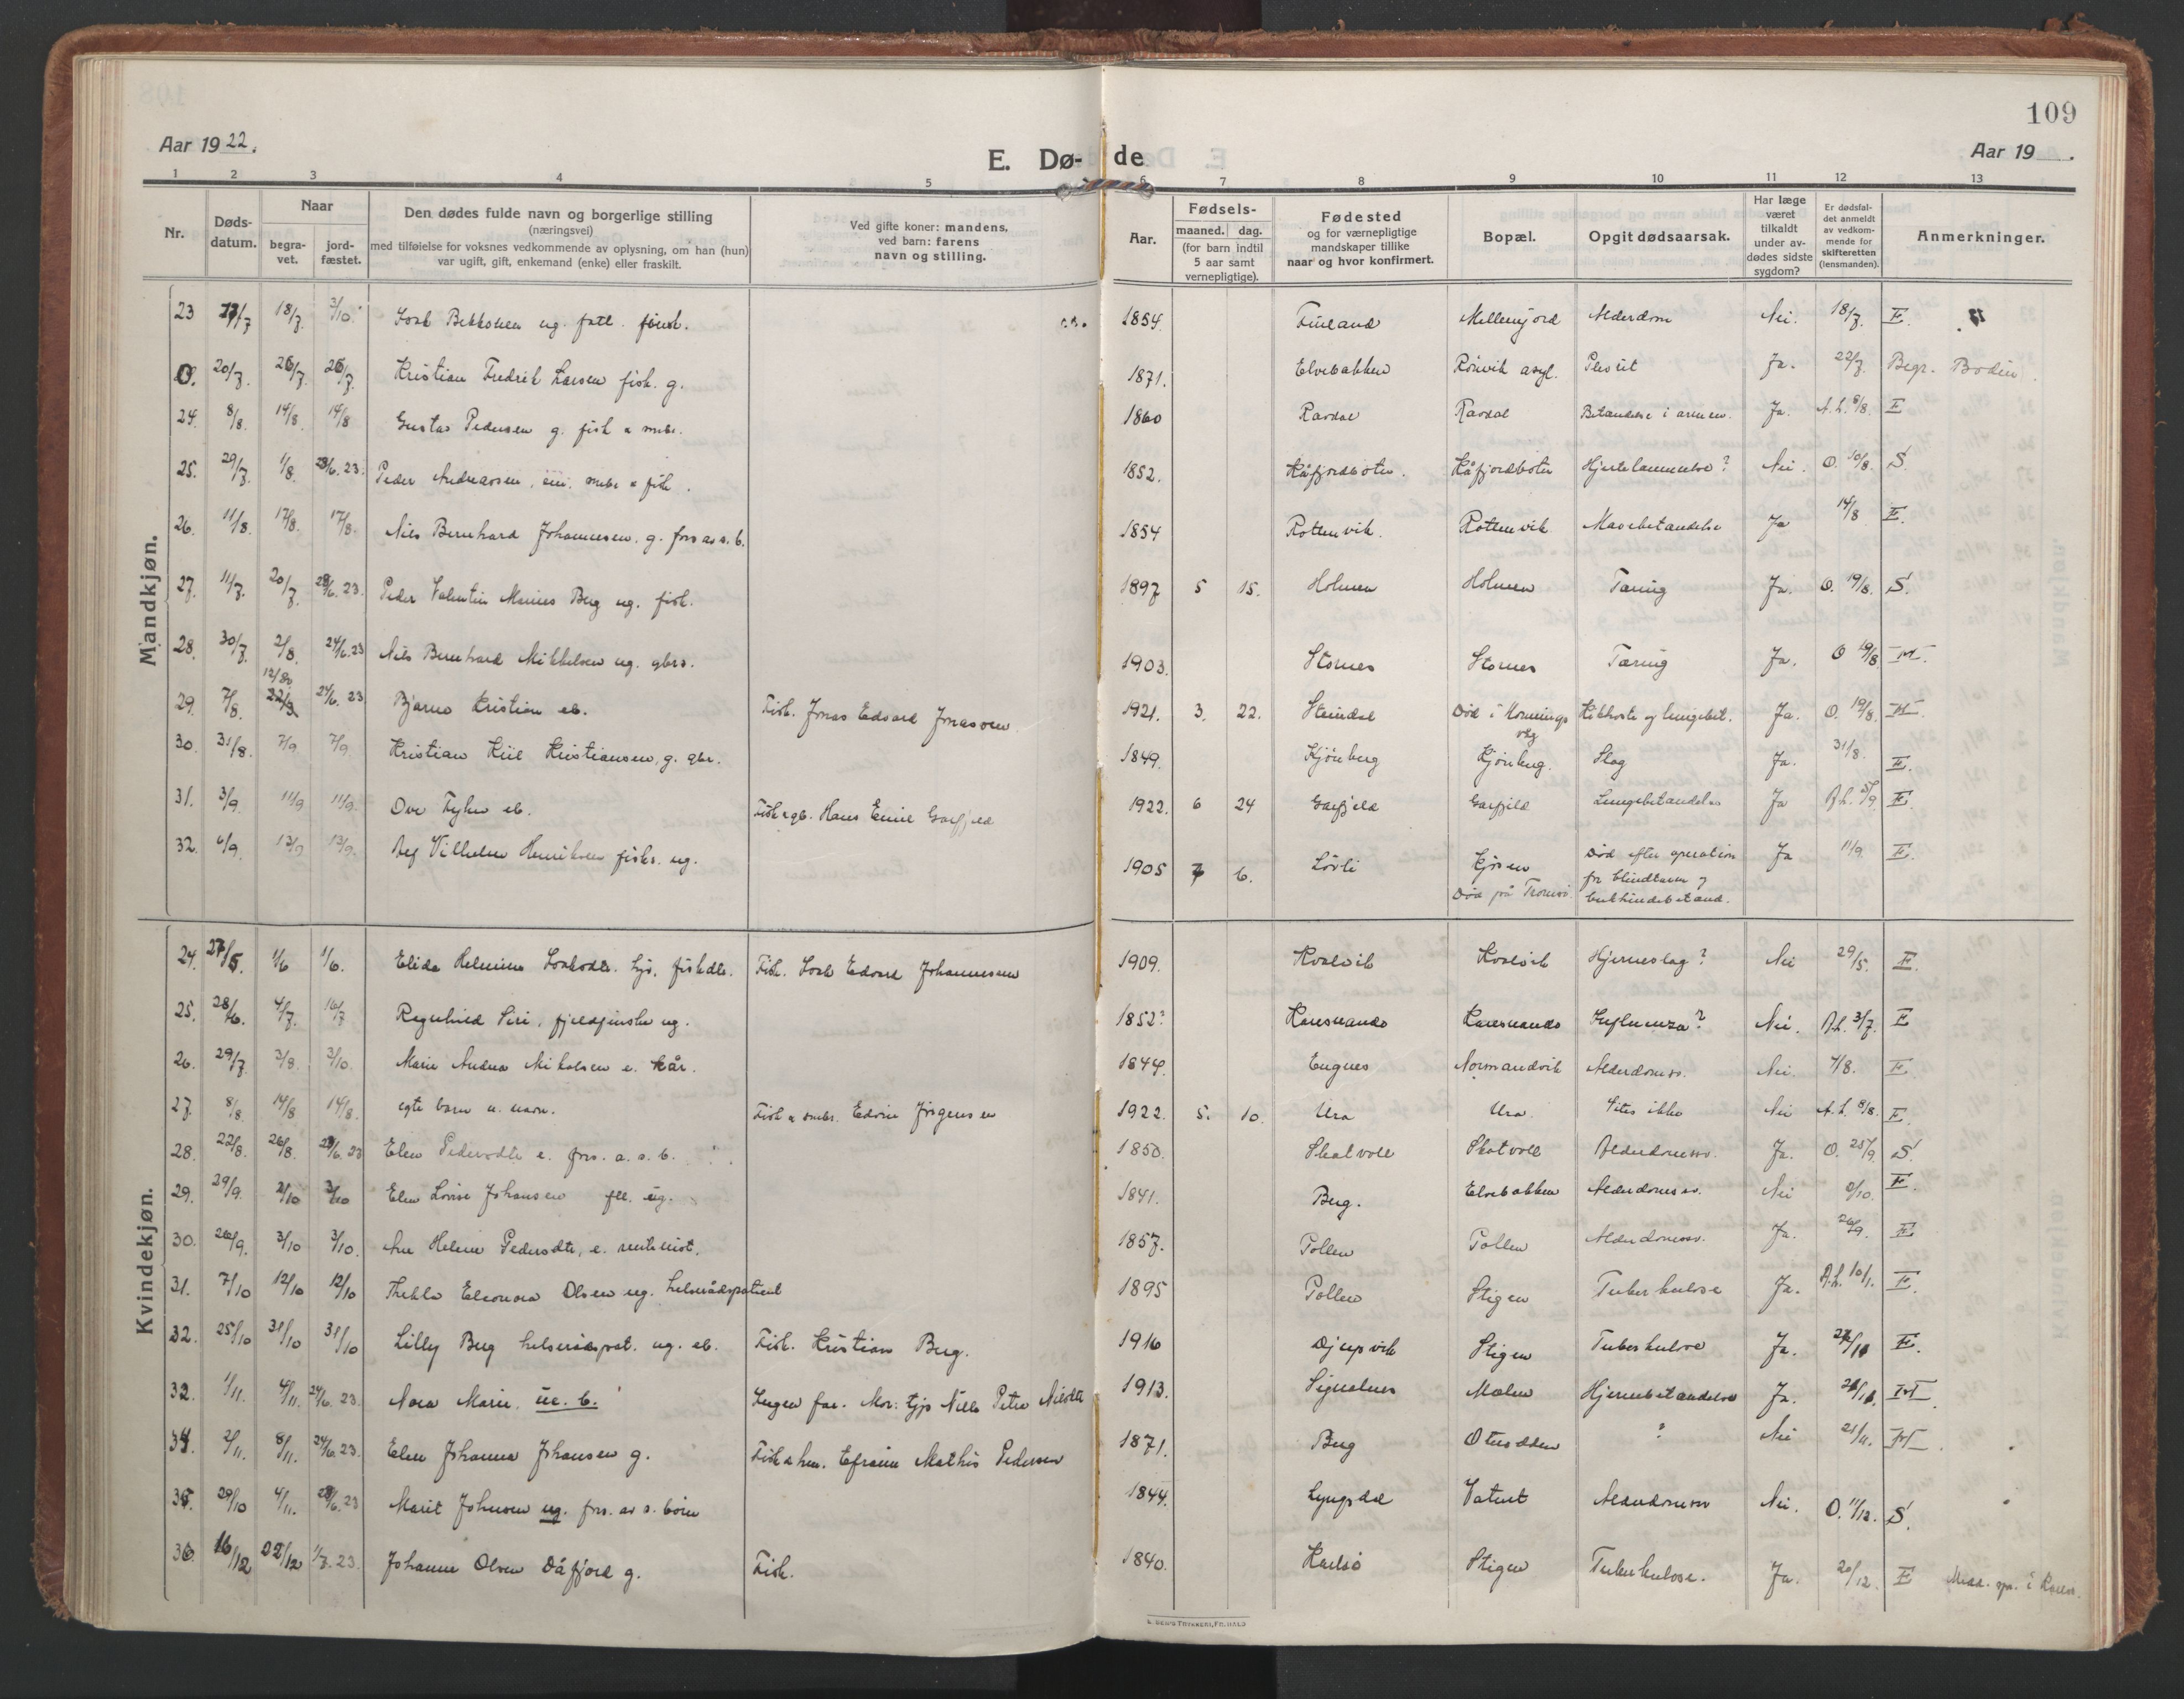 109
Aar 1922.
E. Dø-de
Aar 19 .
1 2 3 4 5 6 7 8 9 10 11 12 13
Nr.
Døds-
datum.
Naar
begra-
vet.
jord-
fæstet.
Den dødes fulde navn og borgerlige stilling
(næringsvei)
med tilføielse for voksnes vedkommende av oplysning, om han (hun)
var ugift, gift, enkemand (enke) eller fraskilt.
Ved gifte koner: mandens,
ved barn: farens
navn og stilling.
Aar.
Fødsels-
maaned. dag.
(for barn indtil
5 aar samt
vernepligtige).
Fødested
og for værnepligtige
mandskaper tillike
naar og hvor konfirmert.
Bopæl.
Opgit dødsaarsak.
Har læge
været
tilkaldt
under av-
dødes sidste
sygdom?
Er dødsfal-
det anmeldt
av vedkom-
mende for
skifteretten
(lensmanden).
Anmerkninger.
Mandkjøn.
23 17/7 18/7. 3/10. ug. 1854. Finland Alderdom Nei. 18/7. F.
0. 20/7. 26/7. 26/7. Kristian Fredrik Larsen fisk. g. 1871. Elvebakken Rönvik asyl. Ja. 22/7. Begr. Bodin.
24. 8/8. 14/8. 14/8 Gustav Pedersen g. fisk 1860 Ravdal Ravdal Betændelse i armen. Ja. A.L. 8/8. F
25. 29/7. 1/8. 28/6. 23. Peder Andreassen, fisk. 1852. Kåfjordboten. Kåfjordboten Hjertelammelse? Nei. O. 10/8. S
26. 11/8. 17/8. 17/8. Nils Bernhard Johannesen. g. fors. av s. b. 1854 Rottenvik. Rottenvik Mavebetændelse Ja 14/8 F.
27. 11/7. 20/7. 28/6. 23. Peder Valentin Marius Berg ug. fisk. 1897 5 15. Holmen Holmen Tæring Ja. O. 19/8. S.
28. 30/7. 2/8. 24/6. 23 Nils Bernhard Mikkelsen ug. gbrs. 1903. Stornes Stornes Tæring Ja. O 19/8
29. 7/8. 12/8 24/6. 23 Bjarne Kristian eb. Fisk. Jonas Edvard Jonassen. 1921. 3. 22. Steindal Död i Honningsvåg Kikhoste og lungebet. Ja. O. 19/8.
30. 31/8. 7/9 7/9 Kristian Kiil Kristiansen, g. gbr. 1849. Kjönberg Kjönberg. Slag Ja. 31/8. F.
31. 3/9. 11/9 11/9. Ove eb. Fisk & gb. Hans Emil Garfjeld 1922. 6 24 Garfjeld Garfjeld Lungebetændelse Ja F.
32. 6/9. 13/9 13/9. Vilhelm Henriksen fisker. ug. 1905 7 6. Lövli Kjosen Död på Tromsö. Död efter operation for blindtarm og bukhindebetænd. Ja 11/9. F.
Kvindekjøn.
24. 27/5. 1/6 1/6. Elida Helmine fiskdtr. Fisk. Edvard Johannessen 1909. Kvalvik Kvalvik Hjerneslag? Nei 29/5. F.
25. 28/6. 4/7. 16/7 Regnhild Siri, fjeldfinske ug. 1852? Karesuando Karesuando Influenza? Nei. A.L. 3/7. F
26. 29/7. 3/8. 3/10. Marie Andrea Mikalsen e. kår. 1844. Engnes Normandvik Alderdomssv. Nei. 7/8. F.
27. 8/8. 14/8 14/8. egte barn u. navn. Fisk & smbr. Edvin Jörgensen 1922. 5. 10. Ura Ura. Vites ikke Nei A.L. 8/8. F.
28. 22/8. 26/8. 28/6. 23 Elen Pedersdtr e. fors. a. s. b. 1850. Skatvoll Skatvoll Alderdomssv. Ja. O. 25/9. S.
29. 29/9. 2/10 3/10 Elen Lovise Johansen ug. 1841. Berg. Elvebakken Alderdomssv. Nei 2/10. F.
30. 26/9. 3/10 3/10. Ane Helene Pedersdtr, e. 1857. Pollen Pollen Alderdomssv. Ja. 26/9. F.
31. 7/10 12/10 12/10 Thekla Eleonora Olsen ug. helserådspatient 1895 Pollen Stigen Tuberkulose Ja. A.L. 10/1. F.
32. 25/10 31/10 31/10 Lilly Berg helserådspat. ug. eb. Fisk. Kristian Berg. 1916 Djupvik Stigen Tuberkulose Ja. F.
32. 1/11. 4/11. 24/6. 23. Nora Marie. ue. b. Ingen far. Mor: tjp Nilsdtr 1913. Signalnes Malen Hjernebetændelse Ja.
34. 2/11. 8/11. 24/6. 23. Elen Johanna Johansen g. Fisk Efraim Mathis Pedersen 1871. Berg Oteraasen ? Nei 21/11.
35. 29/10 4/11. 28/6. 23 Marit Johnsen ug. fors. av s. börn 1844. Lyngsdal Alderdomssv Nei. O. 11/12. S.
36. 16/12 22/12 1/7. 23. Johanne Olsen Dåfjord g. Fisk. 1840. Karlsö Stigen Tuberkulose. Ja. 20/12. F